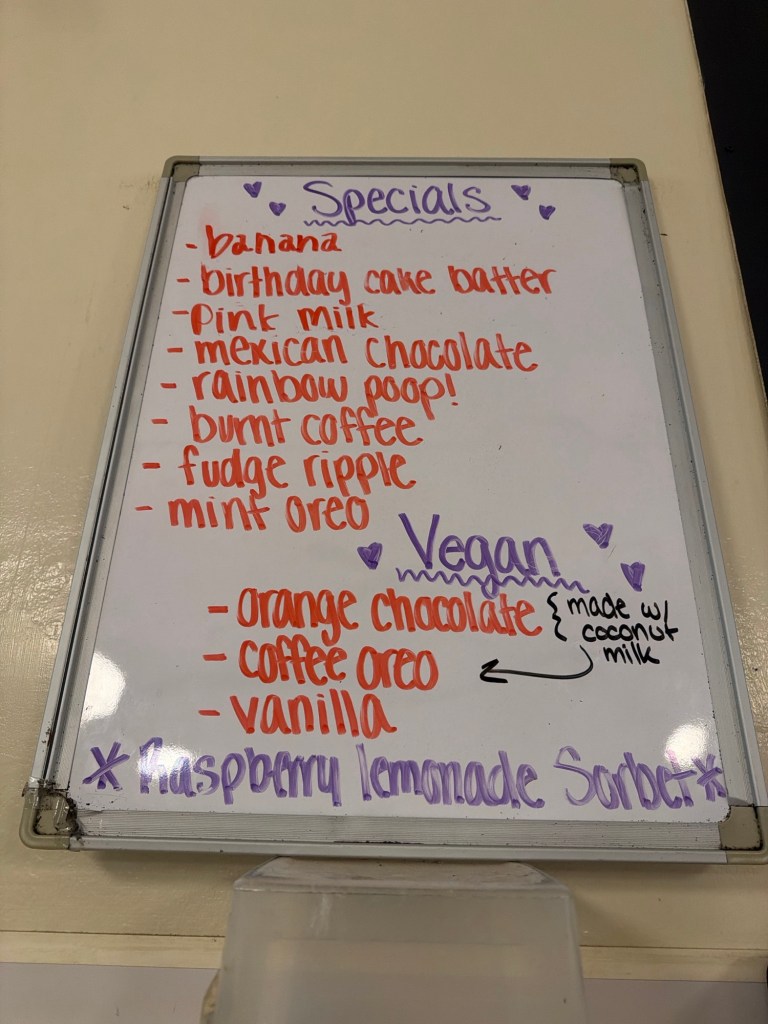 Specials
- banana
- birthday cake batter
- Pink milk
- mexican chocolate
- rainbow poop!
- burnt coffee
- fudge ripple
- mint oreo
Vegan
- orange chocolate { made w/
coconut
milk
- coffee oreo
- vanilla
* Raspberry lemonade Sorbet *